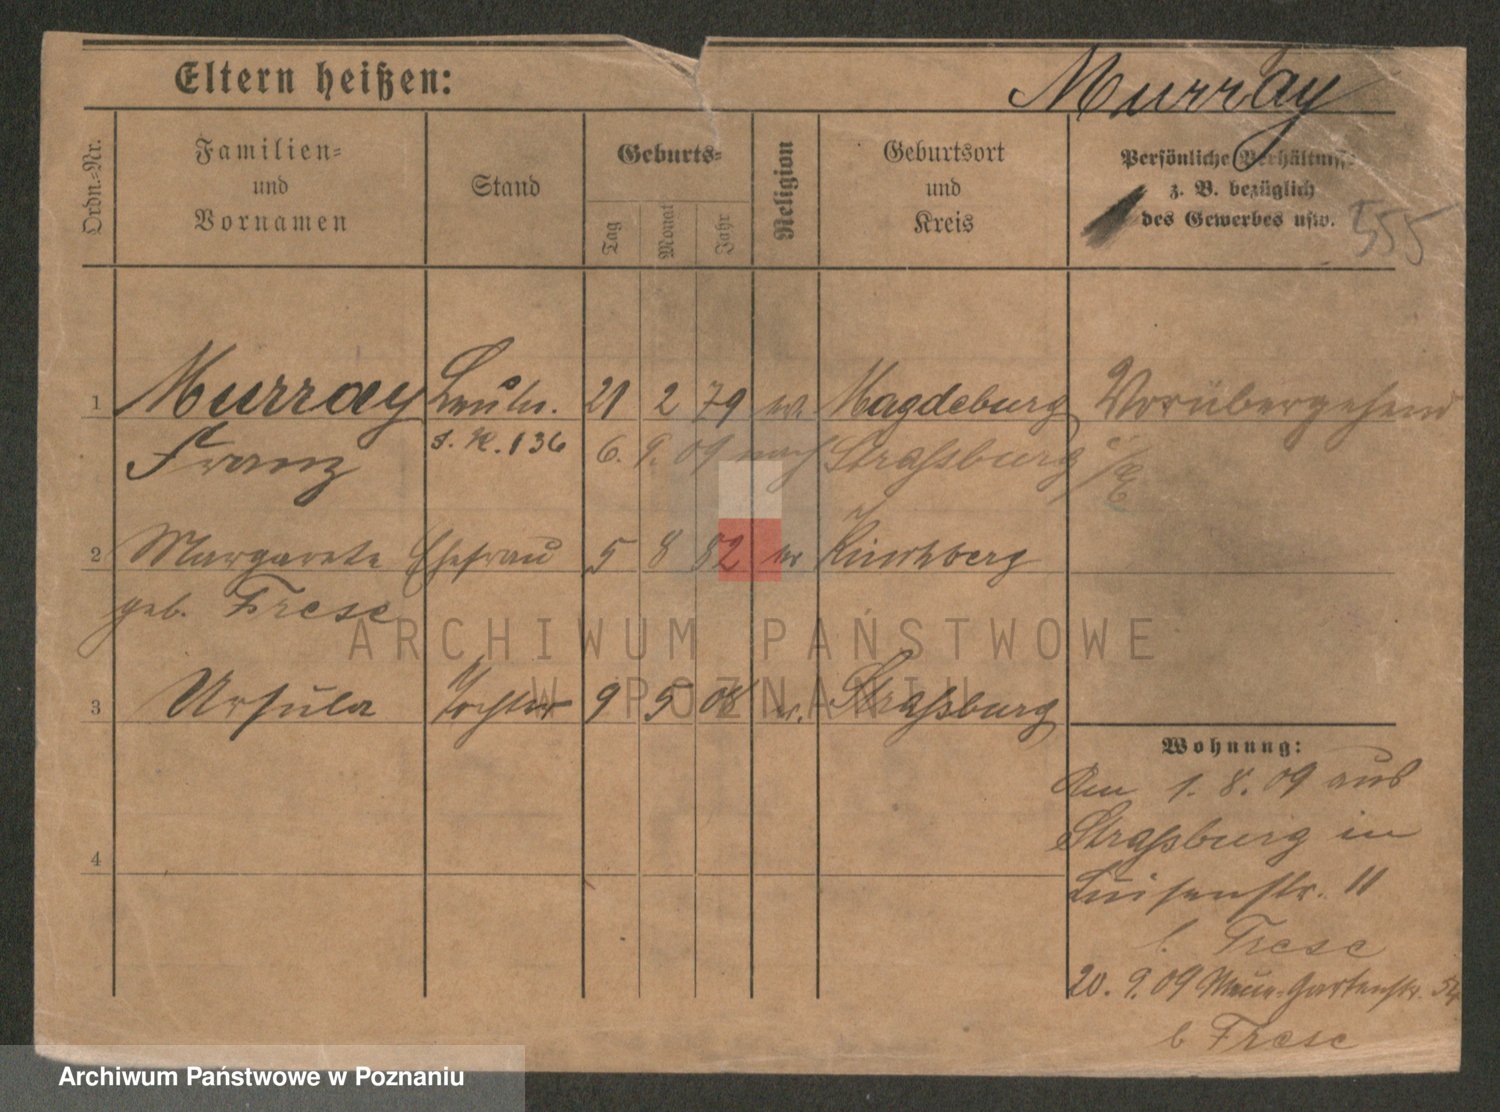 Eltern heißen:
Murray
Ordn.-Nr.
Familien-
und
Vornamen
Stand
Geburts-
Tag
Monat
Jahr
Religion
Geburtsort
und
Kreis
Persönliche Verhältnisse
z. B. bezüglich
des Gewerbes usw.
555
1 Murray Leutn. 21 2 79 ev. Magdeburg Vorübergehend
Franz I. R. 136 6. 9. 09 nach Straßburg i/E
2 Margarete Ehefrau 5 8 82 ev Kirchberg
geb. Frese
3 Ursula Tochter 9 5 08 ev. Straßburg
4
Wohnung:
Am 1. 8. 09 aus
Straßburg in
Luisenstr. 11
b. Frese
20. 9. 09 Gartenstr.
b Frese
ARCHIWUM PAŃSTWOWE
W POZNANIU
Archiwum Państwowe w Poznaniu